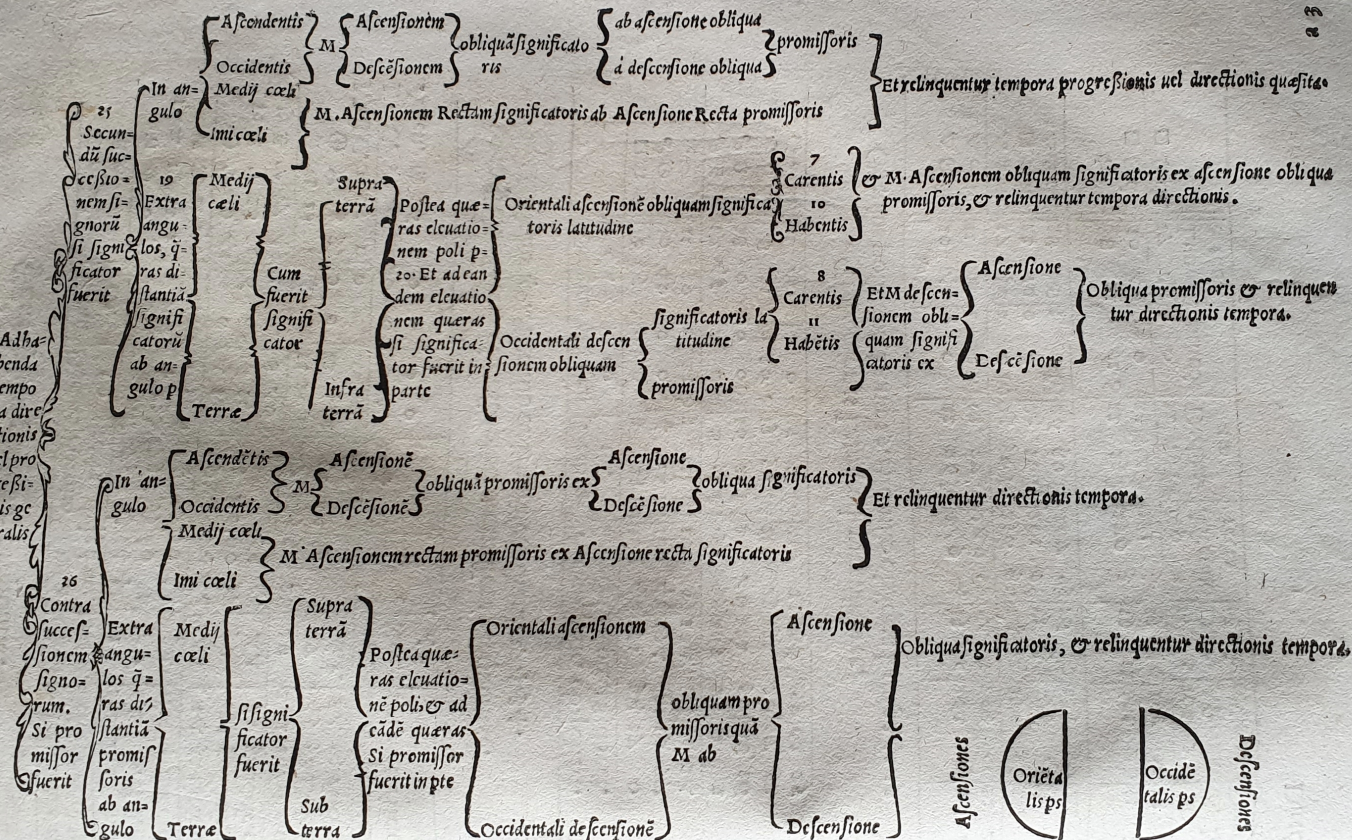 Adha=
benda
tempo
a dire
tionis
el pro
reßi=
is ge
ralis
25
Secun=
dū ſuc=
ceßıo=
nem ſi=
gnorū
ſi ſigni
ficator
fuerit
In an=
gulo
Aſcondentis
Occidentis
Medij cœli
Imi cœli
M
Aſcenſionem
Deſcēſionem
obliquā ſignificato
ris
ab aſcenſione obliqua
à deſcenſione obliqua
promiſſoris
M. Aſcenſionem Rectam ſignificatoris ab Aſcenſione Recta promiſſoris
Et relinquentur tempora progreßionis uel directionis quæſita.
19
Extra
angu=
los, q̄=
ras di=
ſtantiā
ſignifi
catorū
ab an=
gulo p
Medij
cœli
Terræ
Cum
fuerit
ſignifi
cator
Supra
terrā
Infra
terrā
Poſtea quæ=
ras eleuatio=
nem poli p=
20. Et ad ean
dem eleuatio
nem quæras
ſi ſignifica=
tor fuerit in
parte
Orientali aſcenſionē obliquam ſignifica
toris latitudine
7
Carentis
10
Habentis
& M. Aſcenſionem obliquam ſignificatoris ex aſcenſione obliqua
promiſſoris, & relinquentur tempora directionis.
Occidentali deſcen
ſionem obliquam
ſignificatoris la
titudine
promiſſoris
8
Carentis
11
Habētis
Et M deſcen=
ſionem obli=
quam ſignifi
catoris ex
Aſcenſione
Deſcēſione
Obliqua promiſſoris & relinquen
tur directionis tempora.
26
Contra
ſucceſ=
ſionem
ſigno=
rum.
Si pro
miſſor
fuerit
In an=
gulo
Aſcendētis
Occidentis
Medij cœli
Imi cœli
M
Aſcenſionē
Deſcēſionē
obliquā promiſſoris ex
Aſcenſione
Deſcēſione
obliqua ſignificatoris
M Aſcenſionem rectam promiſſoris ex Aſcenſione recta ſignificatoris
Et relinquentur directionis tempora.
Extra
angu=
los q̄=
ras di=
ſtantiā
promiſ
ſoris
ab an=
gulo
Medij
cœli
Terræ
ſi ſigni
ficator
fuerit
Supra
terrā
Sub
terra
Poſtea quæ=
ras eleuatio=
nē poli, & ad
eādē quæras
Si promiſſor
fuerit in pte
Orientali aſcenſionem
Occidentali deſcenſionē
obliquam pro
miſſoris quā
M ab
Aſcenſione
Deſcenſione
Obliqua ſignificatoris, & relinquentur directionis tempora.
Aſcenſiones
Oriēta
lis ps
Occidē
talis ps
Deſcenſiones